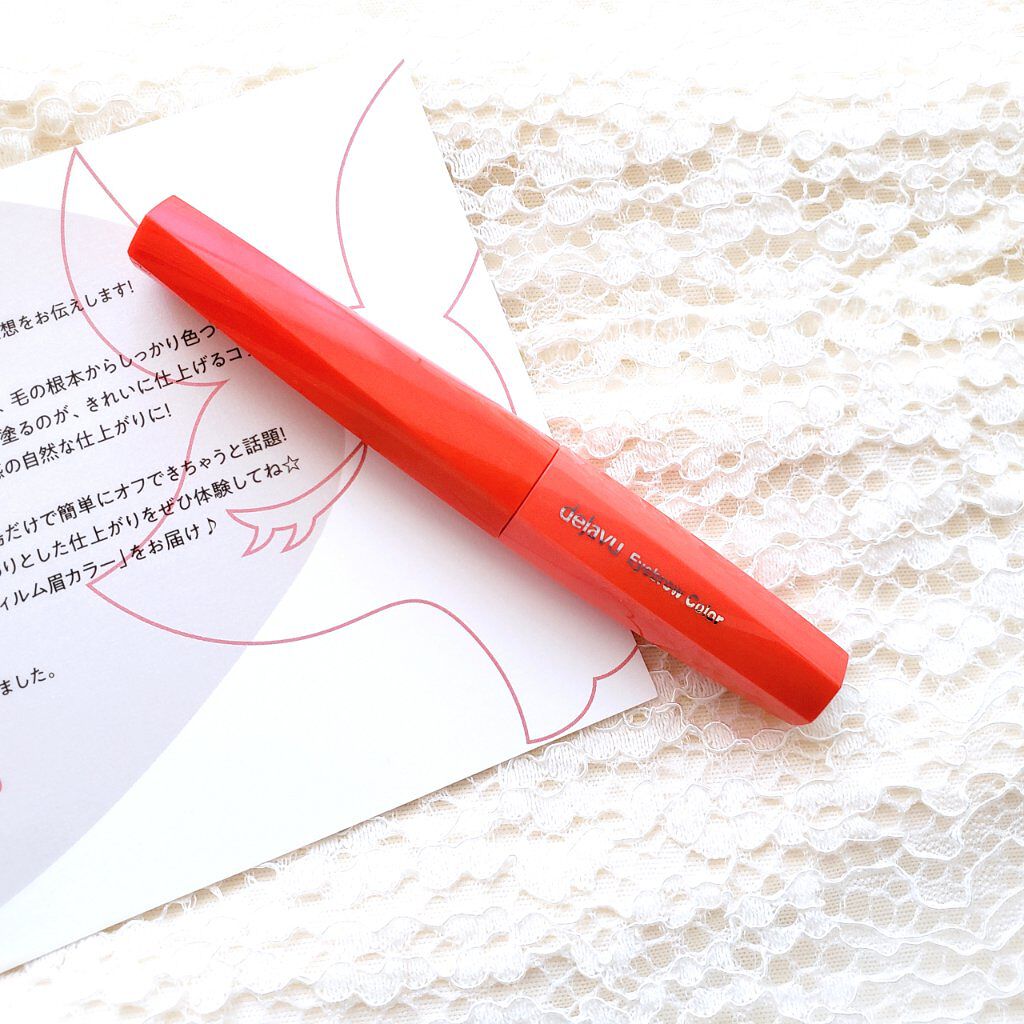 想をお伝えします!
、毛の根本からしっかり色つ
塗るのが、きれいに仕上げるコ
の自然な仕上がりに!
だけで簡単にオフできちゃうと話題!
りとした仕上がりをぜひ体験してね☆
ィルム眉カラー」をお届け♪
ました。
dejavu Eyebrow Color